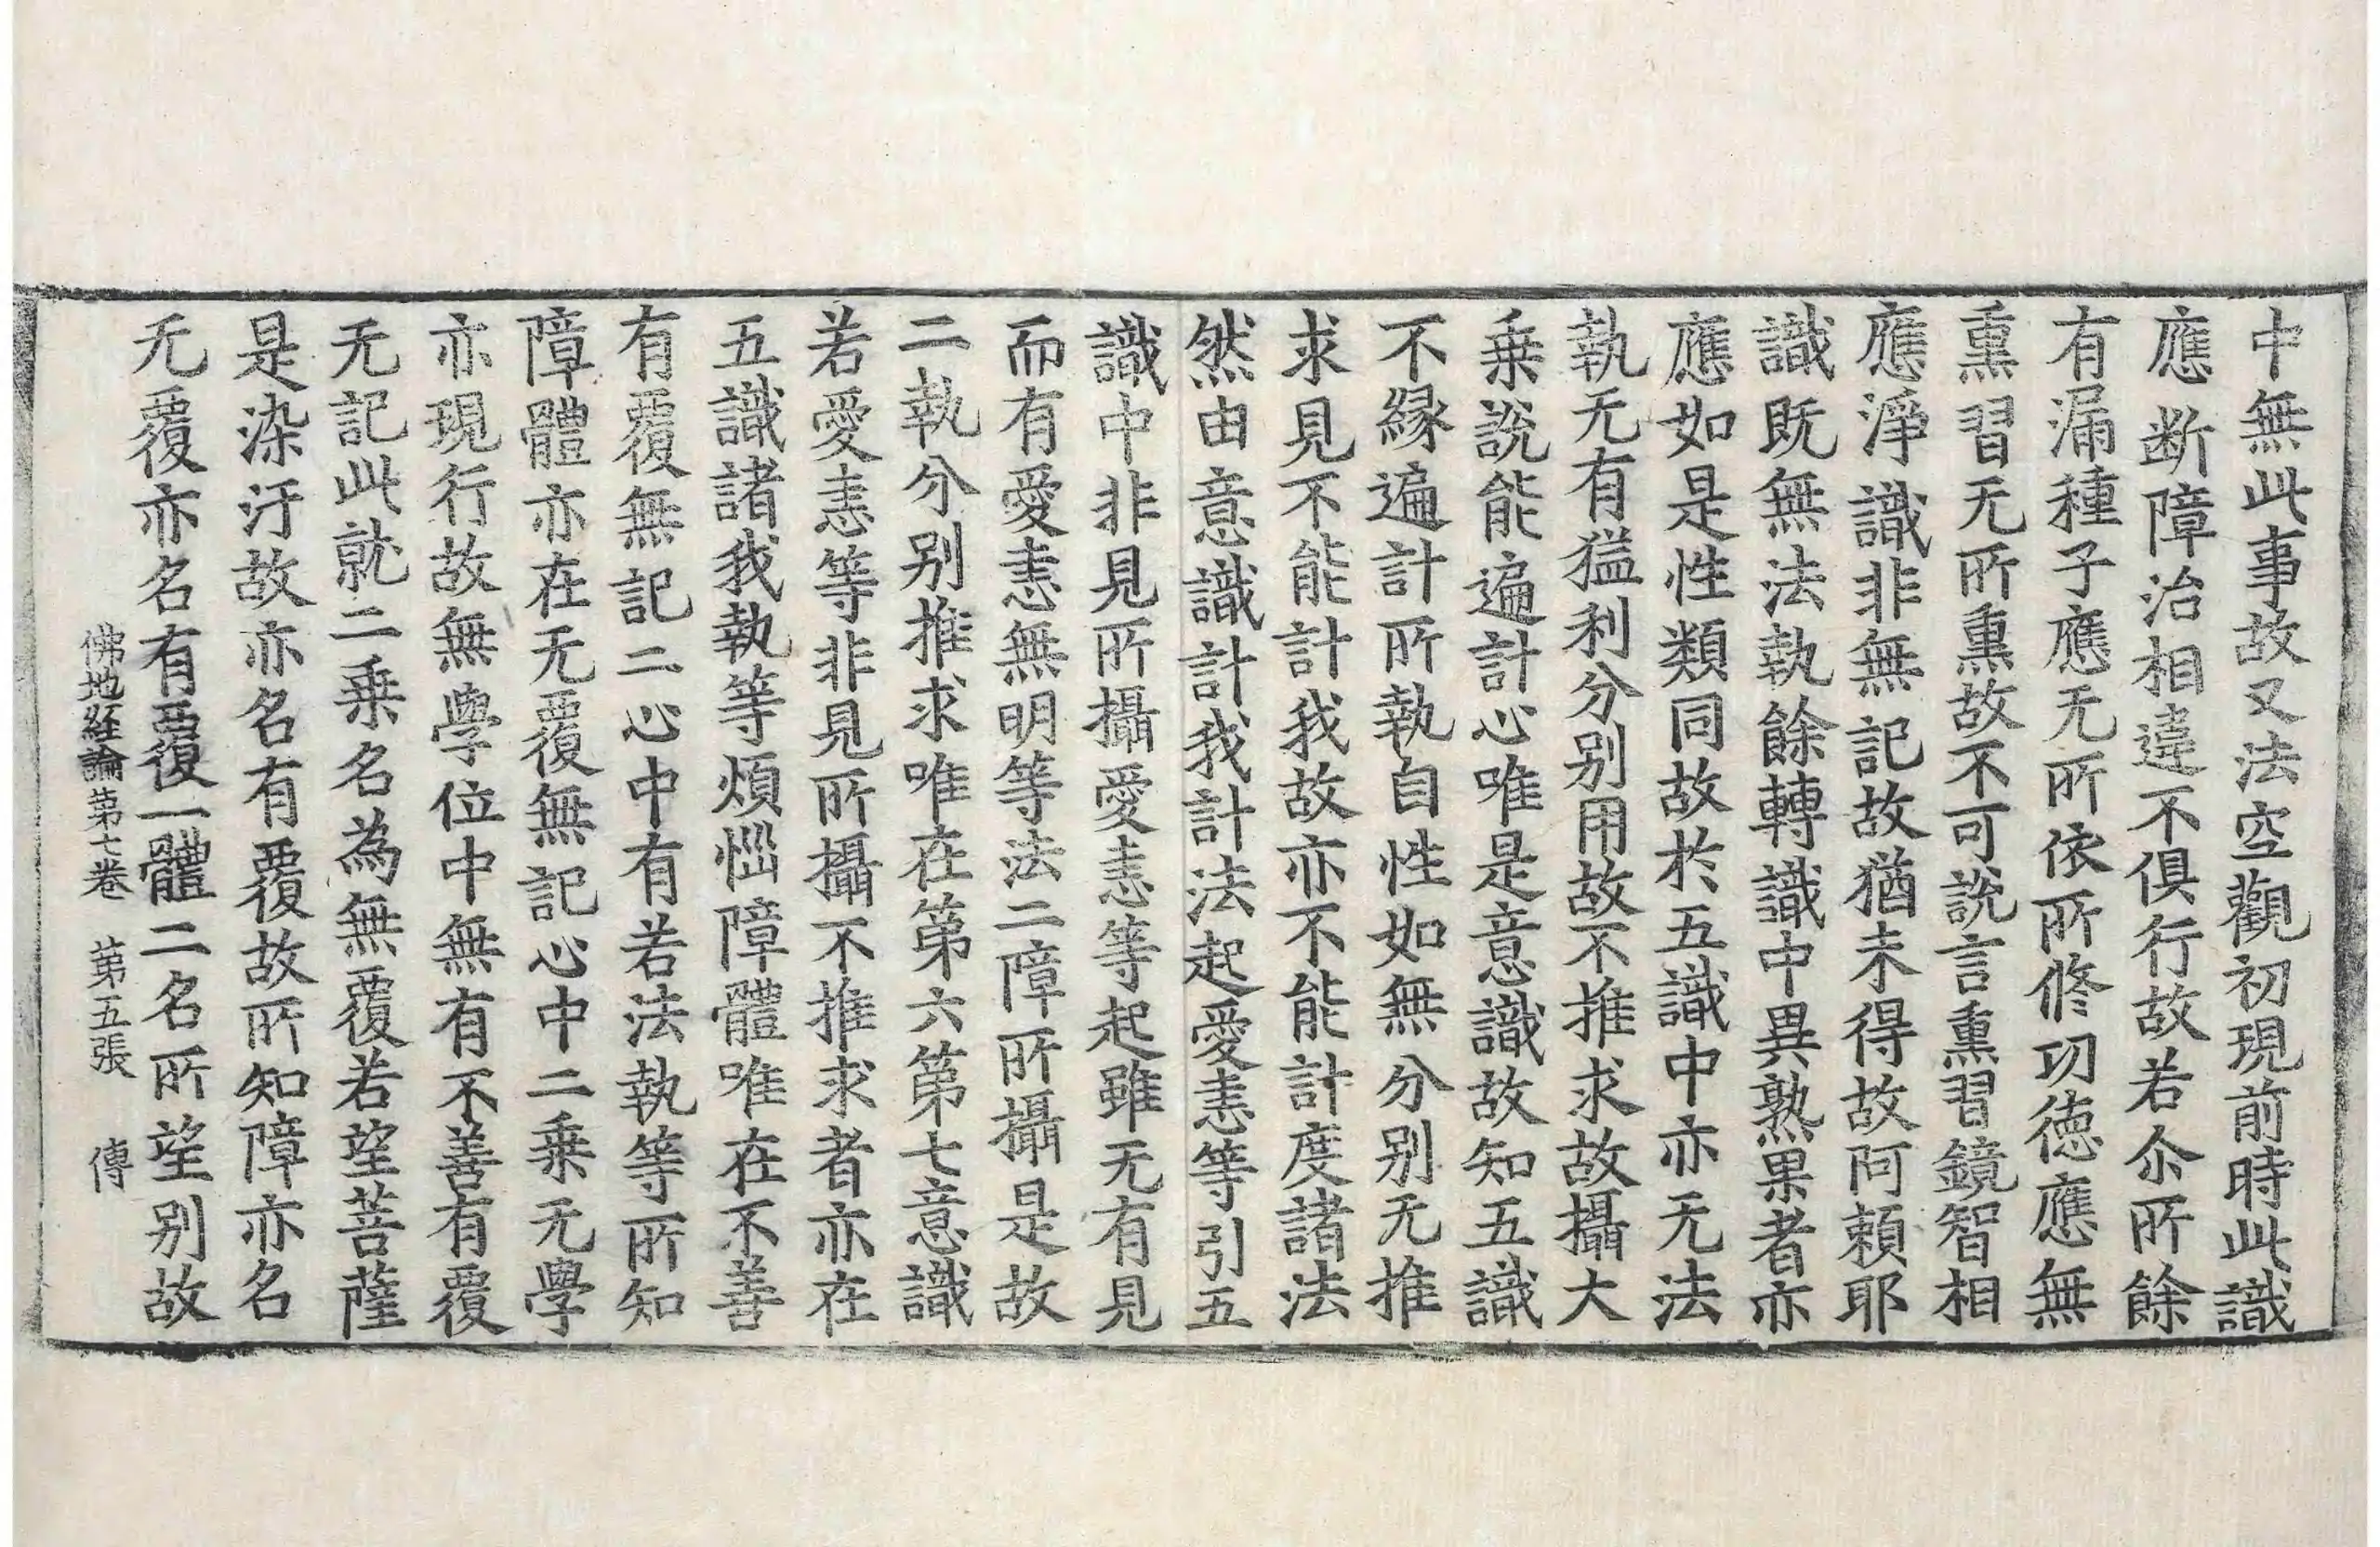 中無此事故又法空觀初現前時此識
應断障治相違不俱行故若尒所餘
有漏種子應无所依所修功徳應無
熏習无所熏故不可說言熏習鏡智相
應淨識非無記故猶未得故阿賴耶
識既無法執餘轉識中異熟果者亦
應如是性類同故於五識中亦无法
執无有猛利分别用故不推求故攝大
乗說能遍計心唯是意識故知五識
不緣遍計所執自性如無分别无推
求見不能計我故亦不能計度諸法
然由意識計我計法起愛恚等引五
識中非見所攝愛恚等起雖无有見
而有愛恚無明等法二障所攝是故
二執分别推求唯在第六第七意識
若愛恚等非見所攝不推求者亦在
五識諸我執等煩惱障體唯在不善
有覆無記二心中有若法執等所知
障體亦在无覆無記心中二乗无學
亦現行故無學位中無有不善有覆
无記此就二乗名為無覆若望菩薩
是染汙故亦名有覆故所知障亦名
无覆亦名有覆一體二名所望别故
佛地経論第七卷 第五張 傳